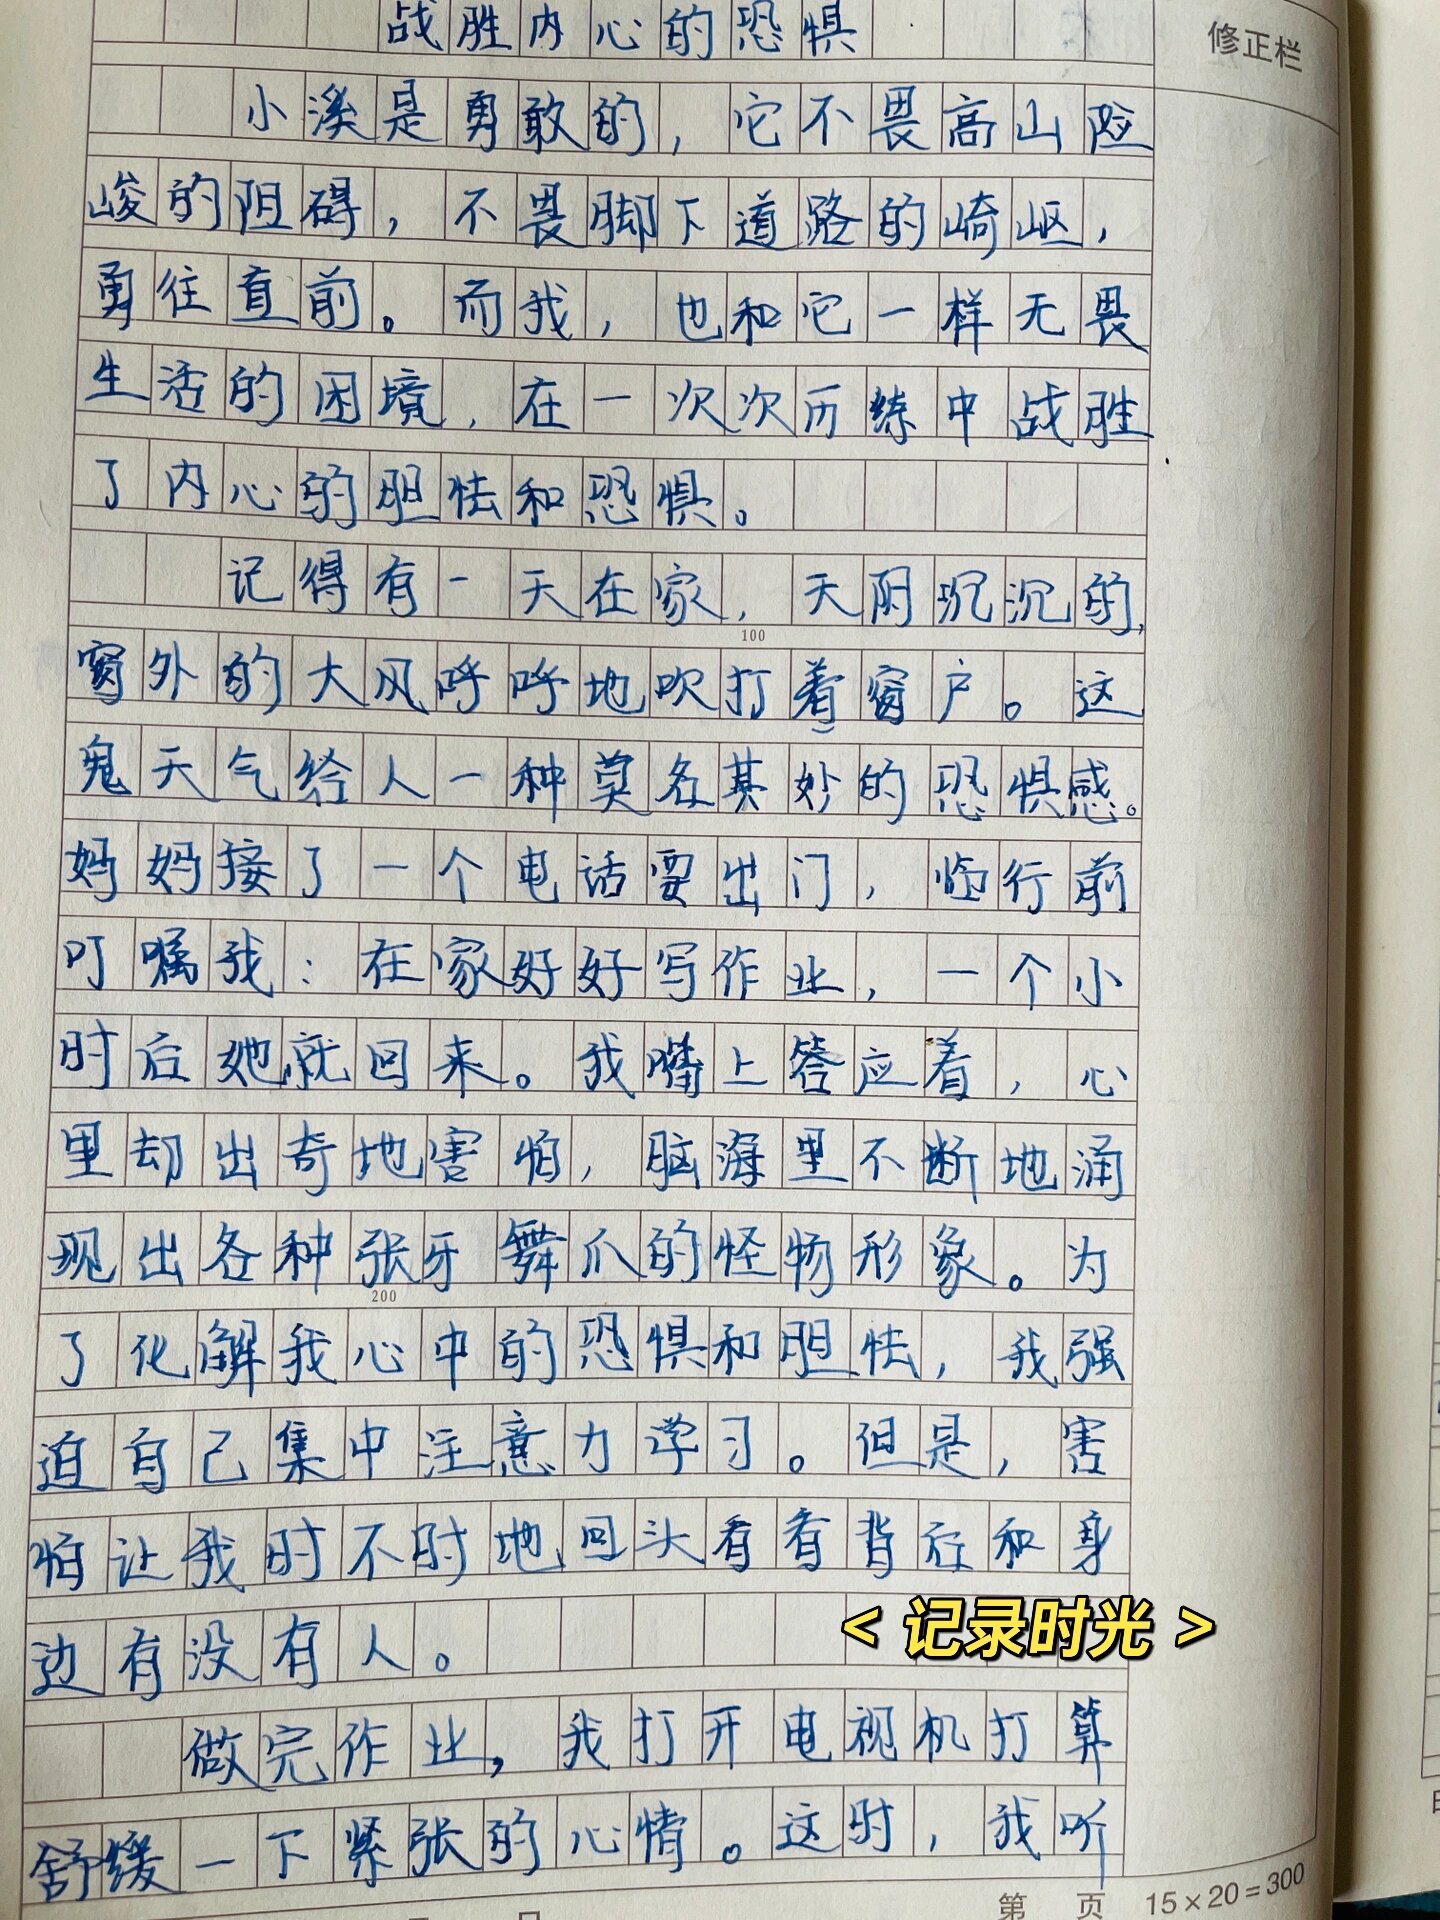 战胜内心的恐惧
修正栏
小溪是勇敢的，它不畏高山险
峻的阻碍，不畏脚下道路的崎岖，
勇往直前。而我，也和它一样无畏
生活的困境，在一次次历练中战胜
了内心的胆怯和恐惧。
记得有一天在家，天阴沉沉的，
100
窗外的大风呼呼地吹打着窗户。这
鬼天气给人一种莫名其妙的恐惧感。
妈妈接了一个电话要出门，临行前
叮嘱我：在家好好写作业，一个小
时后她就回来。我嘴上答应着，心
里却出奇地害怕，脑海里不断地涌
现出各种张牙舞爪的怪物形象。为
200
了化解我心中的恐惧和胆怯，我强
迫自己集中注意力学习。但是，害
怕让我时不时地回头看看背后和身
边有没有人。
<记录时光>
做完作业，我打开电视机打算
舒缓一下紧张的心情。这时，我听
第 页 15×20=300